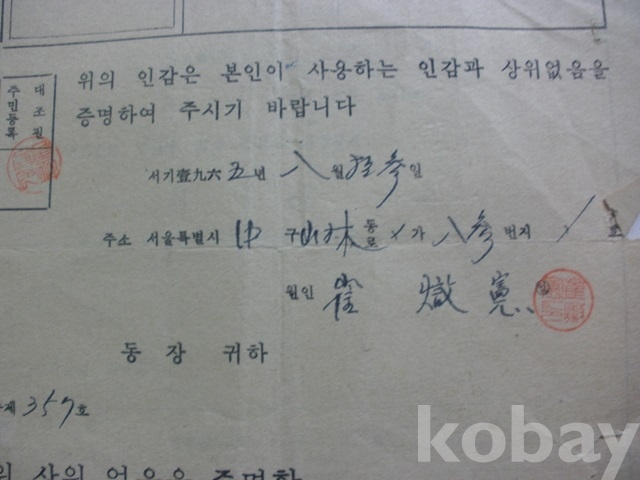 위의 인감은 본인이 사용하는 인감과 상위없음을
증명하여 주시기 바랍니다
주민등록
대조필
서기壹九六五년 八월 拾參일
주소 서울특별시 中구 林동로 가 八參번지
원인 崔 熾憲
동 장 귀하
제 357호
상위 없음을 증명함
kobay